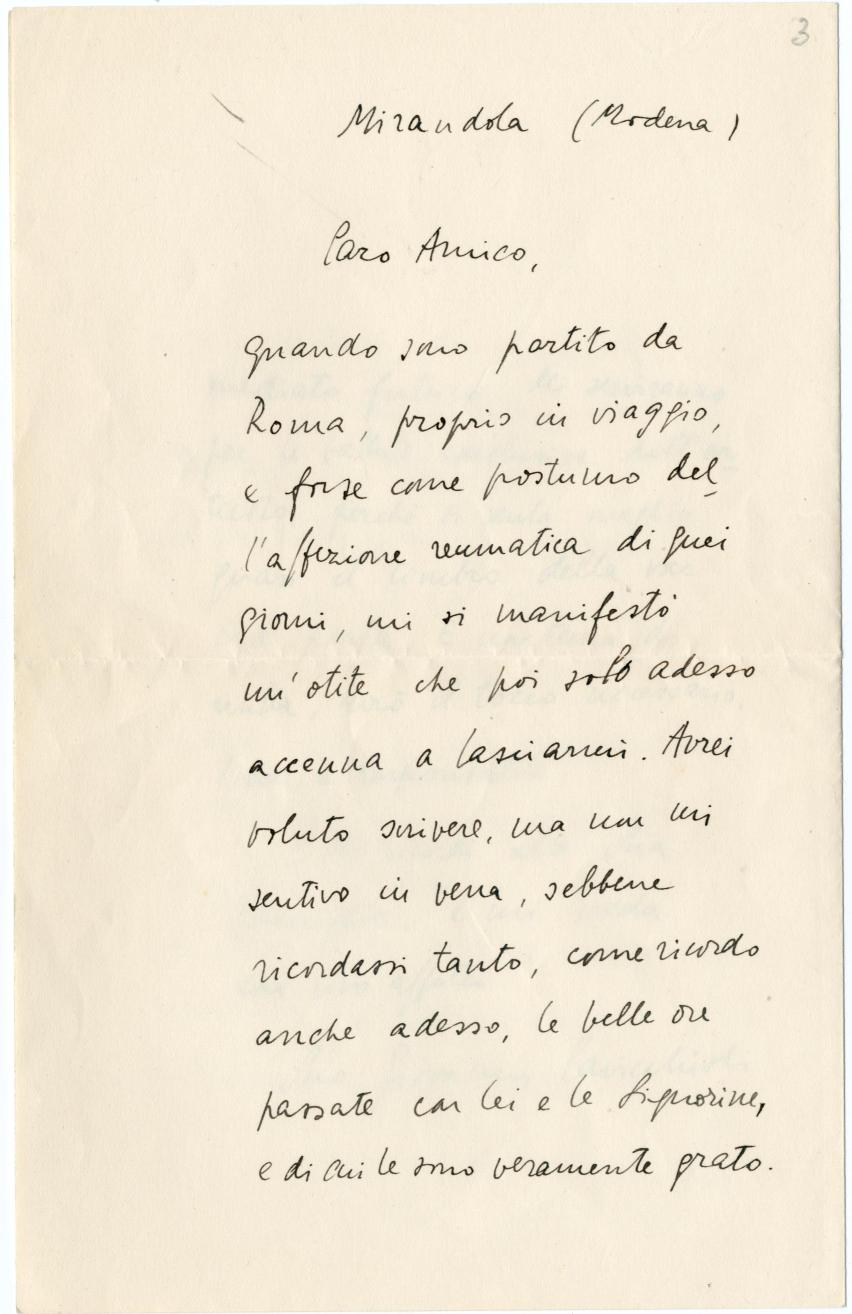 3
Mirandola (Modena)
Caro Amico,
quando sono partito da
Roma, proprio in viaggio,
e forse come postumo del_
l'affezione reumatica di quei
giorni, mi si manifestò
un'otite che poi solo adesso
accenna a lasciarmi. Avrei
voluto scrivere, ma non mi
sentivo in vena, sebbene
ricordassi tanto, come ricordo
anche adesso, le belle ore
passate con lei e le Signorine,
e di cui le sono veramente grato.